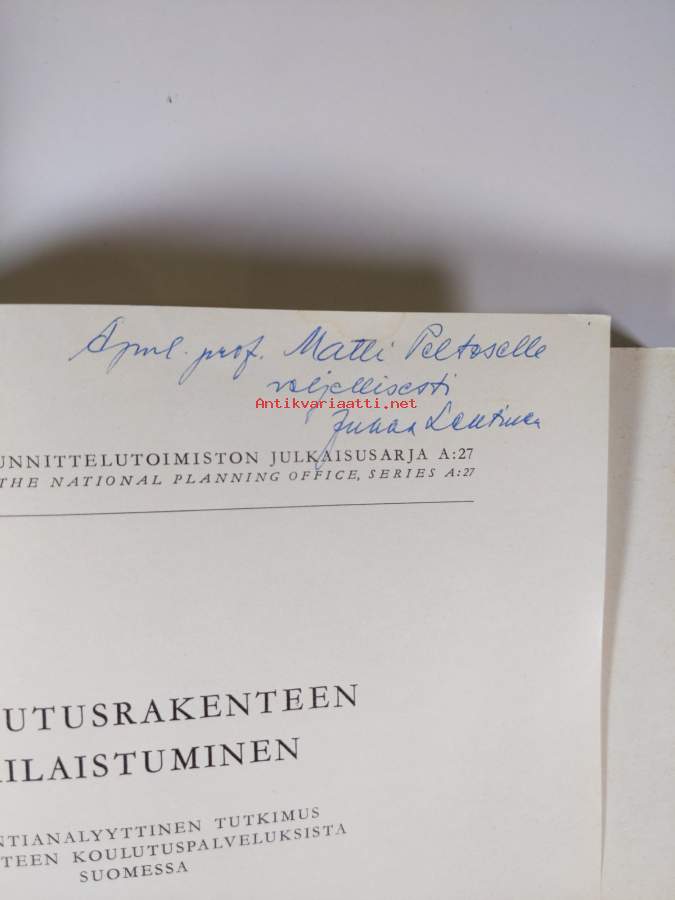 Apul. prof. Matti Peltoselle
veljellisesti
Antikvariaatti.net
Juhan
UNNITTELUTOIMISTON JULKAISUSARJA A:27
THE NATIONAL PLANNING OFFICE, SERIES A:27
UTUSRAKENTEEN
ILAISTUMINEN
NTIANALYYTTINEN TUTKIMUS
TEEN KOULUTUSPALVELUKSISTA
SUOMESSA